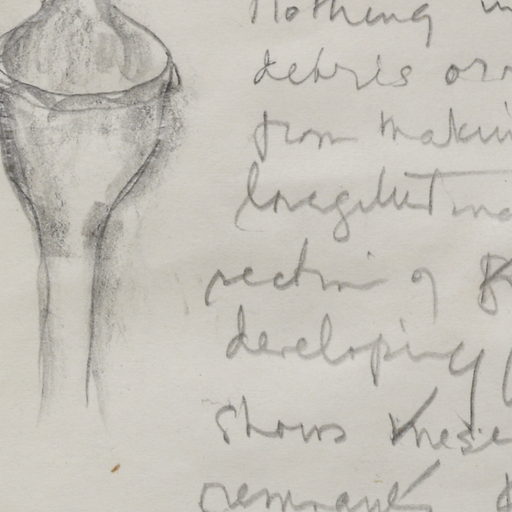 Nothing in
debris or
from makin
longitudina
section of
developing
shows these
remnant